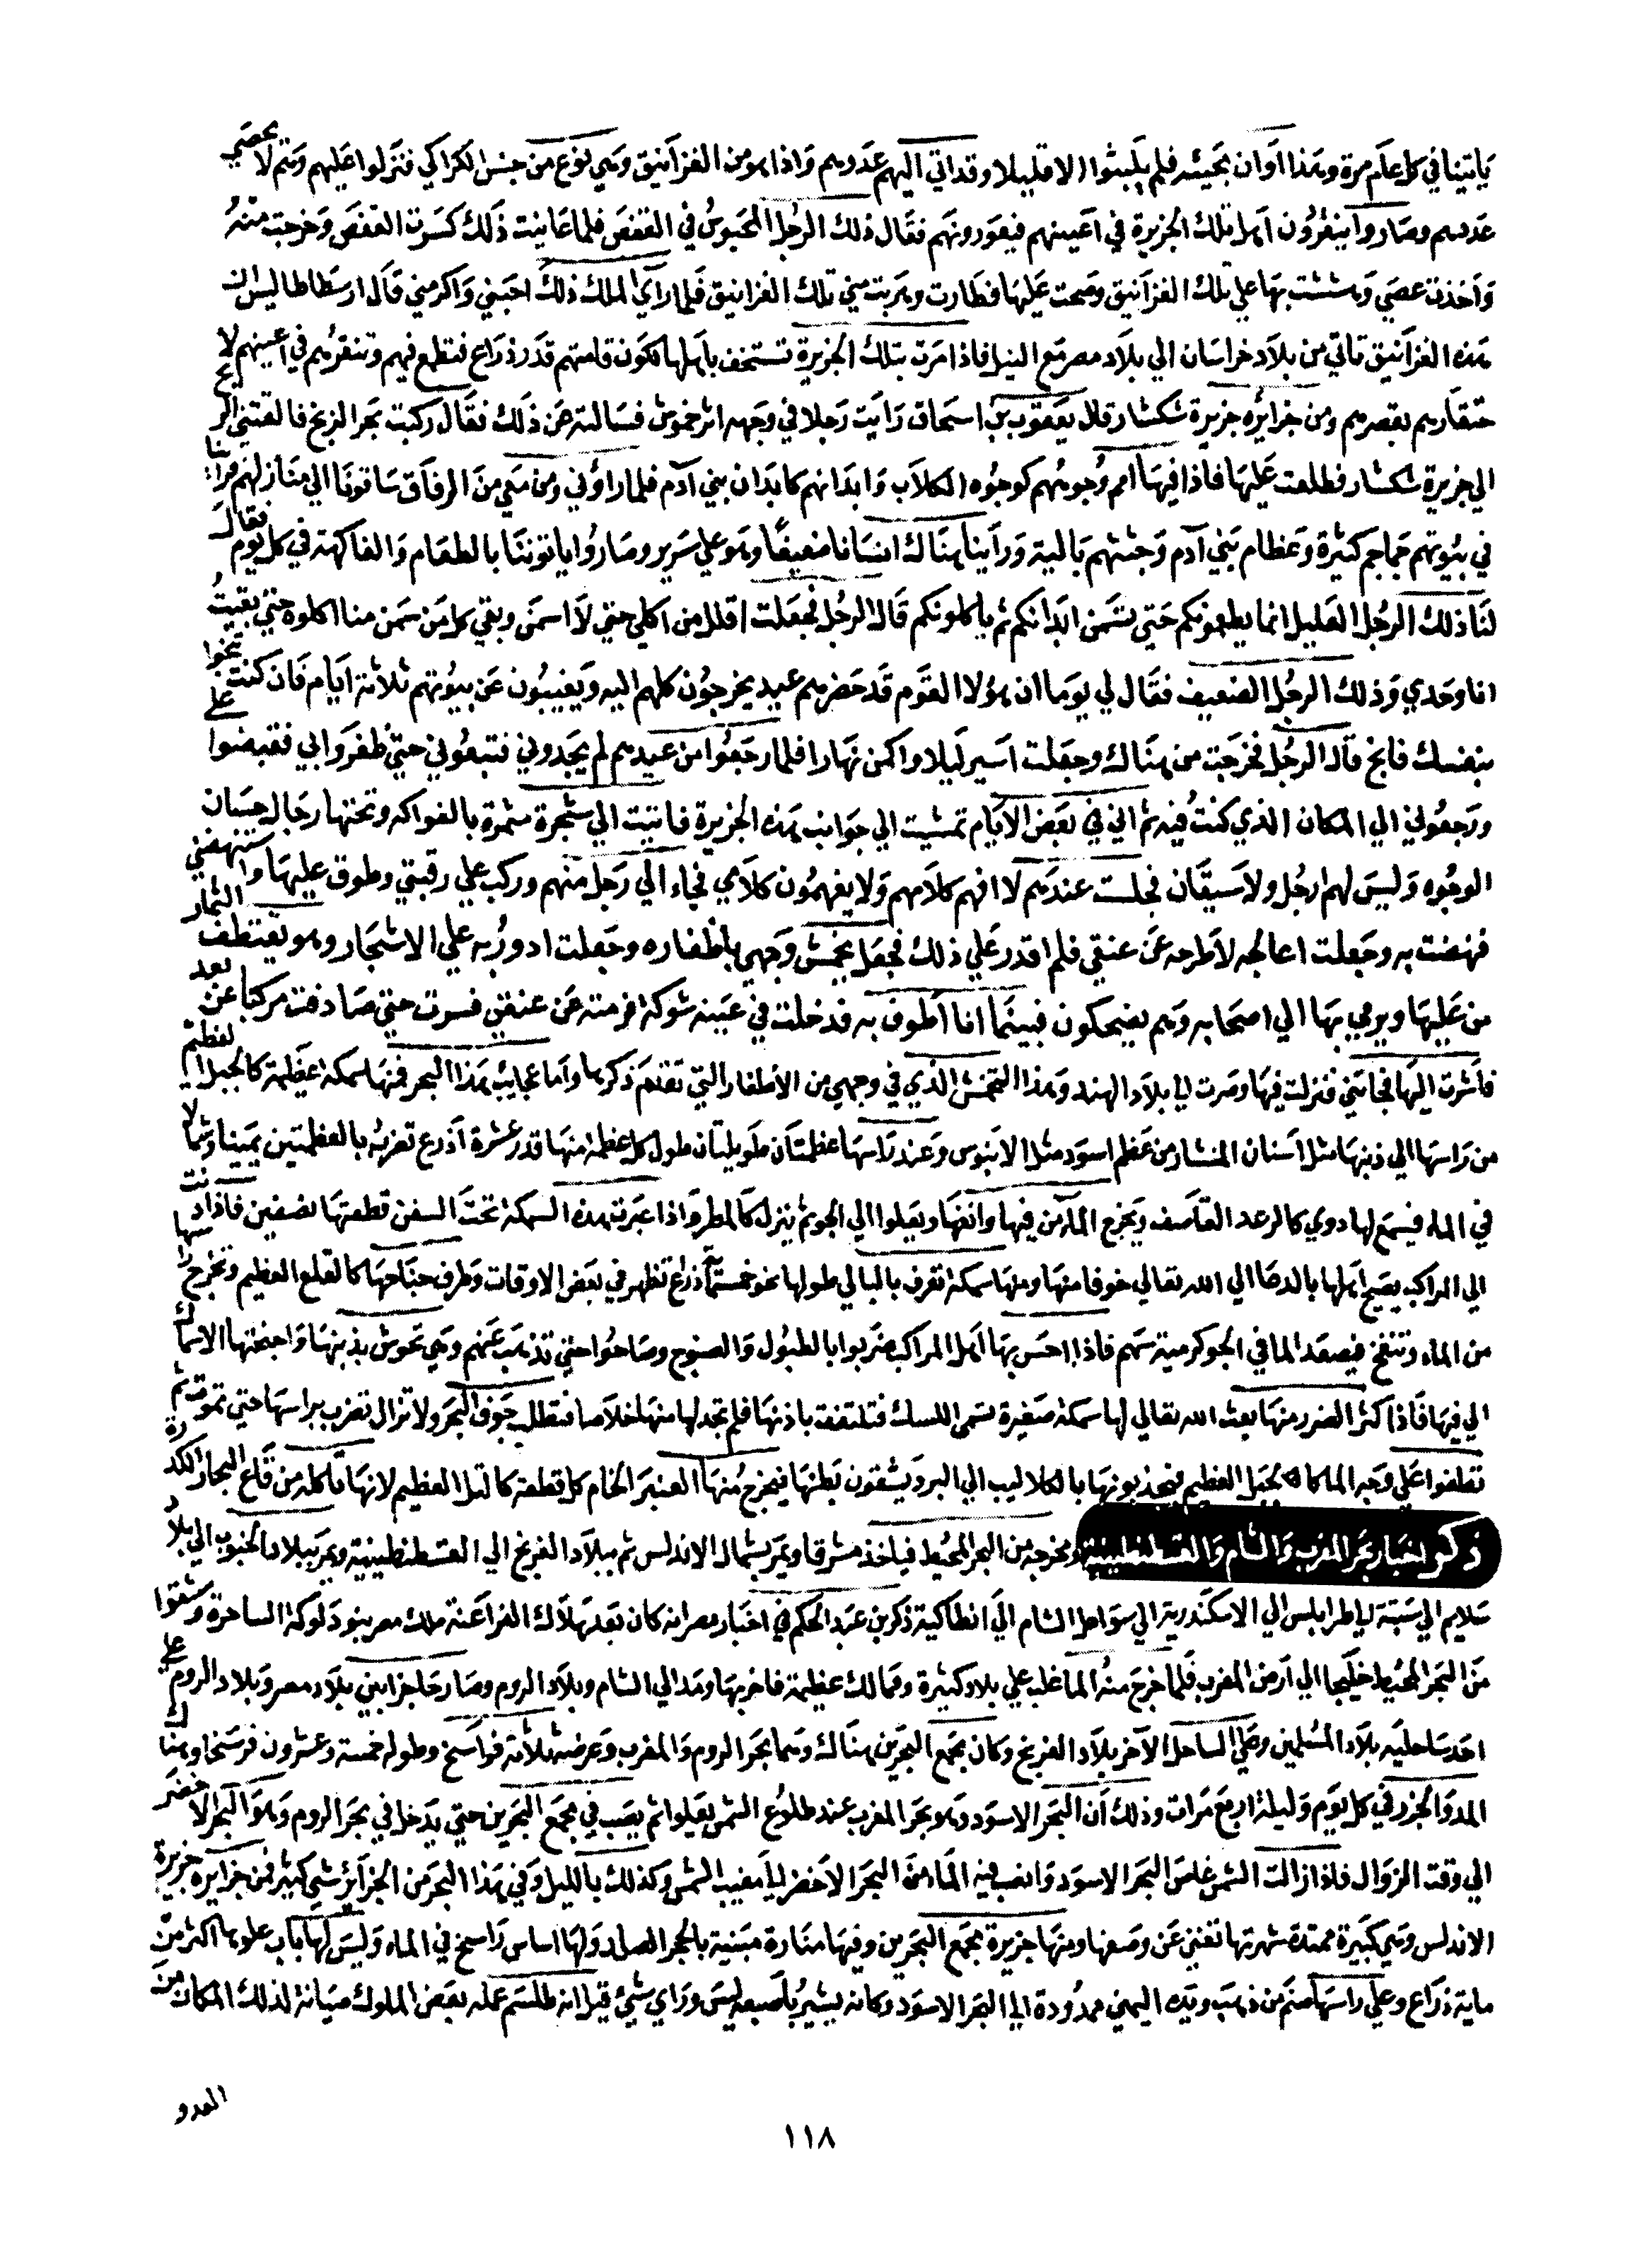 ياتينا في كل عام مرة وهذا اوان مجيئه فلم يلبثوا الا قليلا وقد اتي اليهم عدوهم واذا هو من الغرانيق وهي نوع من جنس الكراكي فنزلوا عليهم وهم لا يحصي
عددهم وصاروا ينقرون اهل تلك الجزيرة في اعينهم فيعورونهم فقال ذلك الرجل المحبوس في القفص فلما عاينت ذلك كسرت القفص وخرجت منه
واخذت عصي وهششت بها علي تلك الغرانيق وصحت عليها فطارت وهربت مني تلك الغرانيق فلما راي الملك ذلك احبني واكرمني قال ارسطاطاليس ان
هذه الغرانيق تاتي من بلاد خراسان الي بلاد مصر مع النيل فاذا مرت بتلك الجزيرة تستخف باهلها لكون قامتهم قدر ذراع فتطمع فيهم وتنقرهم في اعينهم لا
حتقارهم بقصرهم ومن جزايره جزيرة سكسار قال يعقوب بن اسحاق رايت رجلا في وجهه اثر خموش فسالته عن ذلك فقال ركبت بحر الزنج فالقتني الريح
الي جزيرة سكسار فطلعت عليها فاذا فيها امم وجوههم كوجوه الكلاب وابدانهم كابدان بني آدم فلما راوني ومن معي من الرفاق ساقونا الي منازلهم فراينا
في بيوتهم جماجم كثيرة وعظام بني آدم وجثثهم بالية وراينا هناك انسانا ضعيفا وهو علي سرير وصاروا ياتوننا بالطعام والفاكهة في كل يوم فقال
لنا ذلك الرجل العليل انما يطعمونكم حتي تسمن ابدانكم ثم ياكلونكم قال الرجل فجعلت اقلل من اكلي حتي لا اسمن وبقي كل من سمن منا اكلوه حتي بقيت
انا وحدي وذلك الرجل الضعيف فقال لي يوما ان هؤلا القوم قد حضرهم عيد يخرجون كلهم اليه ويغيبون عن بيوتهم ثلاثة ايام فان كنت تنجوا
بنفسك فانج قال الرجل فخرجت من هناك وجعلت اسير ليلا واكمن نهارا فلما رجعوا من عيدهم لم يجدوني فتبعوني حتي ظفروا بي فقبضوا علي
ورجعوني الي المكان الذي كنت فيه ثم اني في بعض الايام تمشيت الي جوانب هذه الجزيرة فاتيت الي شجرة مثمرة بالفواكه وتحتها رجال حسان
الوجوه وليس لهم ارجل ولا سيقان فجلست عندهم لا افهم كلامهم ولا يفهمون كلامي فجاء الي رجل منهم وركب علي رقبتي وطوق عليها واستنهضني
فنهضت به وجعلت اعالجه لاطرحه عن عنقي فلم اقدر علي ذلك فجعل يخمش وجهي باظفاره وجعلت ادور به علي الاشجار وهو يقتطف الثمار
من عليها ويرمي بها الي اصحابه وهم يضحكون فبينما انا اطوف به فدخلت في عينه شوكة فرمته عن عنقي فسرت حتي صادفت مركبا عن بعد
فاشرت اليها فجاتني فنزلت فيها وصرت الي بلاد الهند وهذا التخمش الذي في وجهي من الاظفار التي تقدم ذكرها واما عجايب هذا البحر فمنها سمكة عظيمة كالجبل العظيم
من راسها الي ذنبها مثل اسنان المنشار من عظم اسود مثل الابنوس وعند راسها عظمتان طويلتان طول كل عظمة منها قدر عشرة آذرع تضرب بالعظمتين يمينا وشمالا
في الماء فيسمع لها دوي كالرعد القاصف ويخرج الماء من فيها وانفها ويعلوا الي الجو ثم ينزل كالمطر واذا عبرت هذه السمكة تحت السفن قطعتها نصفين فاذا دنت
الي المراكب يصيح اهلها بالدعا الي الله تعالي خوفا منها ومنها سمكة تعرف بالبالي طولها نحو خمسماية ذراع تظهر في بعض الاوقات وطرف جناحها كالقلع العظيم وتخرج راسها
من الماء وتنفخ فيصعد الما في الجو كرمية سهم فاذا احس بها اهل المراكب ضربوا بالطبول والصنوج وصاحوا حتي تذهب عنهم وهي تحوش بذنبها واجنحتها الاسماك
الي فيها فاذا كثر الضرر منها بعث الله تعالي لها سمكة صغيرة تسمي اللسك فتلتفت باذنها فلم تجد لها منها خلاصا فتطلب جوف البحر ولا تزال تضرب براسها حتي تموت ثم
تطفوا علي وجه الما كالجبل العظيم فيجذبونها بالكلاليب الي البر ويشقون بطنها فيخرج منها العنبر الخام كل قطعة كالتل العظيم لانها تاكله من قاع البحار الكدرة
ذكر اخبار بحر المغرب والشام والقسطنطينية ومخرجه من البحر المحيط فياخذ مشرقا ويمر بشمال الاندلس ثم ببلاد الفرنج الي القسطنطينية ويمر ببلاد الجنوب الي بلاد
سلايم الي سبتة الي اطرابلس الي الاسكندرية الي سواحل الشام الي انطاكية ذكر بن عبد الحكم في اخبار مصر انه كان بعد هلاك الفراعنة ملك مصر بنو دلوكة الساحرة وشقوا
من البحر المحيط خليجا الي ارض المغرب فلما خرج منه الما غلب علي بلاد كثيرة وممالك عظيمة فاخربها ومد الي الشام وبلاد الروم وصار حاجزا بين بلاد مصر وبلاد الروم علي
احد ساحليه بلاد المسلمين وعلي الساحل الآخر بلاد الفرنج وكان مجمع البحرين هناك وهما بحر الروم والمغرب وعرضه ثلاثة فراسخ وطوله خمسة وعشرون فرسخا وهناك
المد والجزر في كل يوم وليلة اربع مرات وذلك ان البحر الاسود وهو بحر المغرب عند طلوع الشمس يعلوا ثم يصب في مجمع البحرين حتي يدخل في بحر الروم وهو البحر الاخضر
الي وقت الزوال فاذا زالت الشمس غاص البحر الاسود وانصب فيه الماء من البحر الاخضر الي مغيب الشمس وكذلك بالليل وفي هذا البحر من الجزائر شي كثير فمن جزايره جزيرة
الاندلس وهي كبيرة ممتدة شهرتها تغني عن وصفها ومنها جزيرة مجمع البحرين وفيها منارة مبنية بالحجر الصلد ولها اساس راسخ في الماء وليس لها باب علوها اكثر من
ماية ذراع وعلي راسها صنم من ذهب ويده اليمني ممدودة الي البحر الاسود وكانه يشير باصبعه ليس وراي شئ قيل انه طلسم عمله بعض الملوك صيانة لذلك المكان من
العدو
١١٨